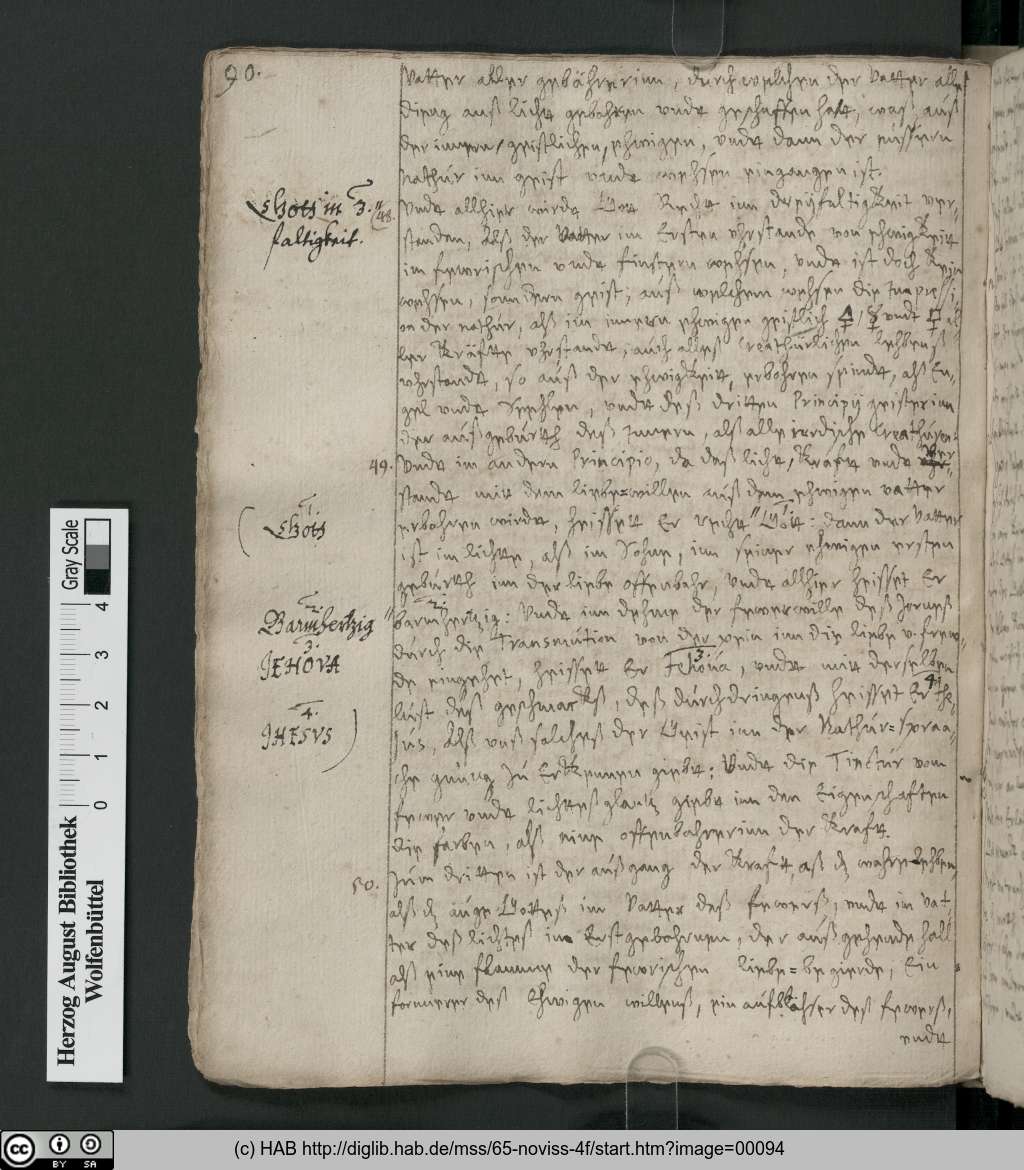 90.
Vatter aller gebährerinn, durch welchen der Vatter alle
dieng auß licht gebohren vnde geschaffen hatt, waß auß
der innern, geistlichen, ehwigen, vnde dann der eussern
nathúr inn geist vnde wehsen eingangen ist.
Gott in 3.
faltigkeit.
48.
Vnde allhier wirdt Gott Recht inn dreÿfaltigkeit ver-
standen, Alß der Vatter im Ersten vhrstande von ehwigkeit
im fewrischen vnde finstern wehsen, vnde ist doch Kein
wehsen, sonndern geist; auß welchem wehsen die Impressi-
on der nathúr, alß im innern ehwigen geistlich 🜃 / vndt al-
ler Kräffte vhrstande, auch alleß Creathürlichen lehbenß
vhrstandt, so auß der ehwigkeit, erbohren seindt, alß En-
gel vnde Seehlen, vnde deß dritten Principÿ geister inn
der außgebúrth deß Innern, alß alle irrdische Creathúren:
49. Vnde im andern Principio, da daß licht, Krafft vnde ver-
stande mit dem liebe=willen auß dem ehwigen vatter
erbohren wirdt, heissett Er recht "Gott: dann der Vatter
ist im lichte, alß im Sohne, inn seiner ehwigen ersten
gebúrth inn der liebe offenbahr, Vnde allhier heisset Er
barmhertzig: Vnde inn dehme der fewerwille deß Zornß
dúrch die Transmútion von der pein inn die liebe v. frew-
de eingehet, heissett Er Jehoúa, vnde mit derselben
lúst deß geschmackß, deß dúrchdringenß heisset Er Jhe-
sús, Alß vnß solcheß der Geist inn der Nathúr=spraa-
che gnúng zú Erkennen giebt; Vnde die Tinctúr vom
fewer vnde lichteß glantz giebt inn den Eigenschaften
die farben, alß eine offenbahrerinn der Krafft.
1.
Gott
2.
Barmhertzig
3.
JEHOVA
4.
JHESVS
50.
Zúm dritten ist der außgang der Krafft, alß dz wahre lehben,
alß dz aúge Gotteß im Vatter deß fewerß, vnde im vat-
ter deß lichteß im Erstgebohrnen, der außgehende hall
alß eine flamme der fewrischen liebe=begierde, Ein
formerer deß Ehwigen willenß, ein aufblähser deß fewerß,
vnde
Gray Scale
4
3
2
1
0
Herzog August Bibliothek
Wolfenbüttel
cc BY SA
(c) HAB http://diglib.hab.de/mss/65-noviss-4f/start.htm?image=00094